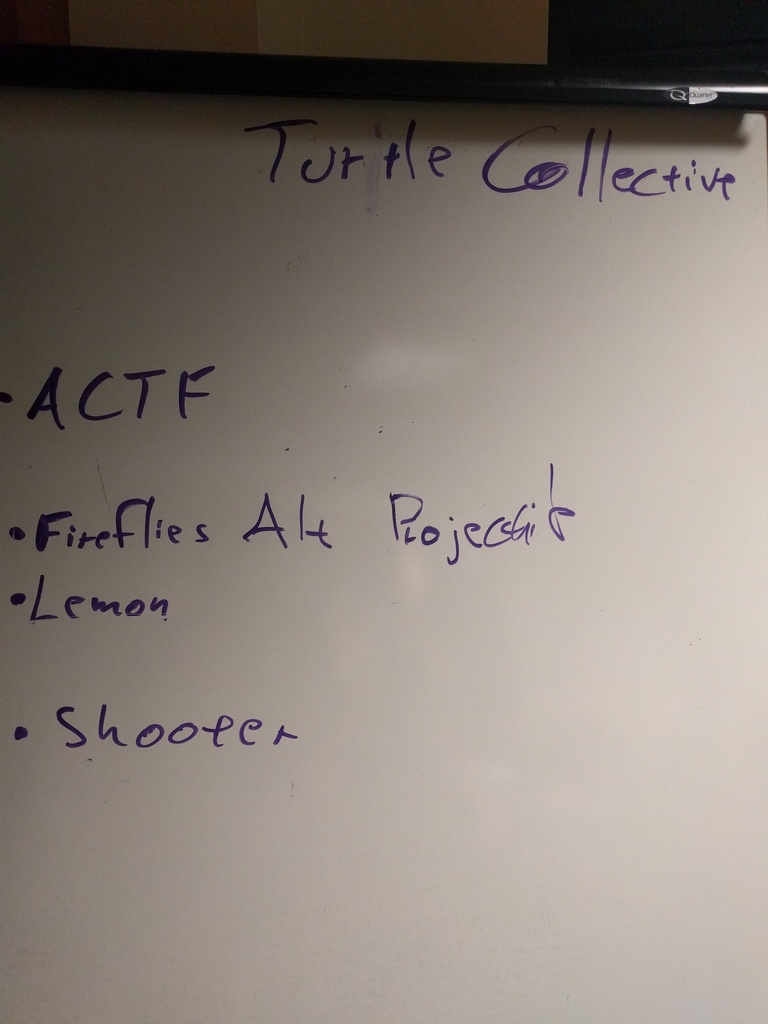 Quartet
Turtle Collective
• ACTF
• Fireflies Alt
• Lemon
• Shooter